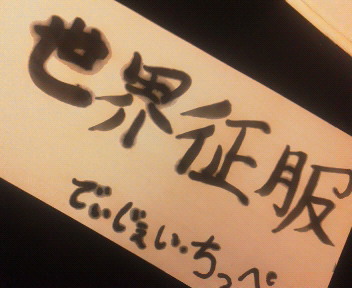 世界征服
でぃじぇい.ちっぺ